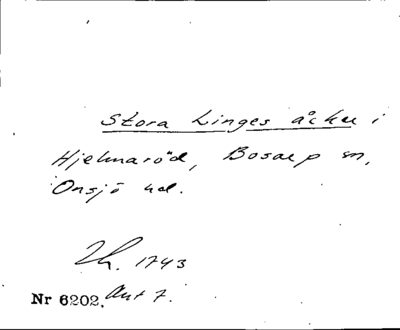 Stora Linges åcker i
Hjelmaröd, Bosarp sn,
Onsjö hd.
Th. 1743
Nr 6202. Ant 7.